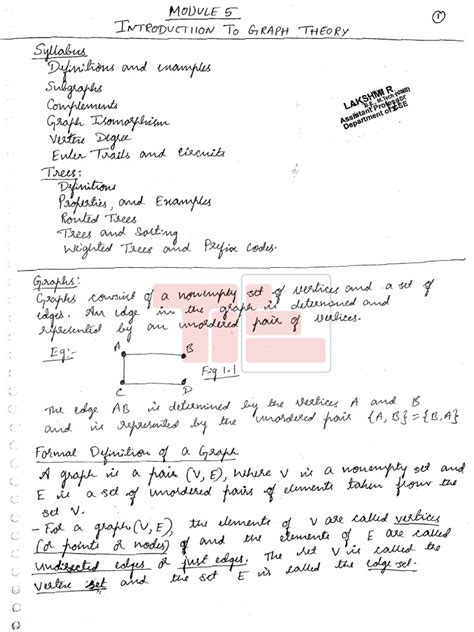 MODULE 5
①
INTRODUCTIION TO GRAPH THEORY
Syllabus
Definitions and examples
Subgraphs
Complements
Graph Isomorphism
Vertex Degree
Euler Trails and Circuits
LAKSHMI R
Assistant Professor
Department of CSE
Trees:
Definitions
Properties, and Examples
Routed Trees
Trees and Sorting
Weighted Trees and Prefix Codes.
Graphs:
Graphs consist of a nonempty set of vertices and a set of
edges. An edge in the graph is determined and
represented by an unordered pair of vertices.
Eg:-
A
B
C
D
Fig 1.1
The edge AB is determined by the vertices A and B
and is represented by the unordered pair {A, B} = {B, A}
Formal Definition of a Graph
A graph is a pair (V, E), where V is a nonempty set and
E is a set of unordered pairs of elements taken from the
set V.
- For a graph (V, E), the elements of V are called vertices
(or points or nodes) of and the elements of E are called
undirected edges or just edges. The set V is called the
vertex set and the set E is called the edge set.